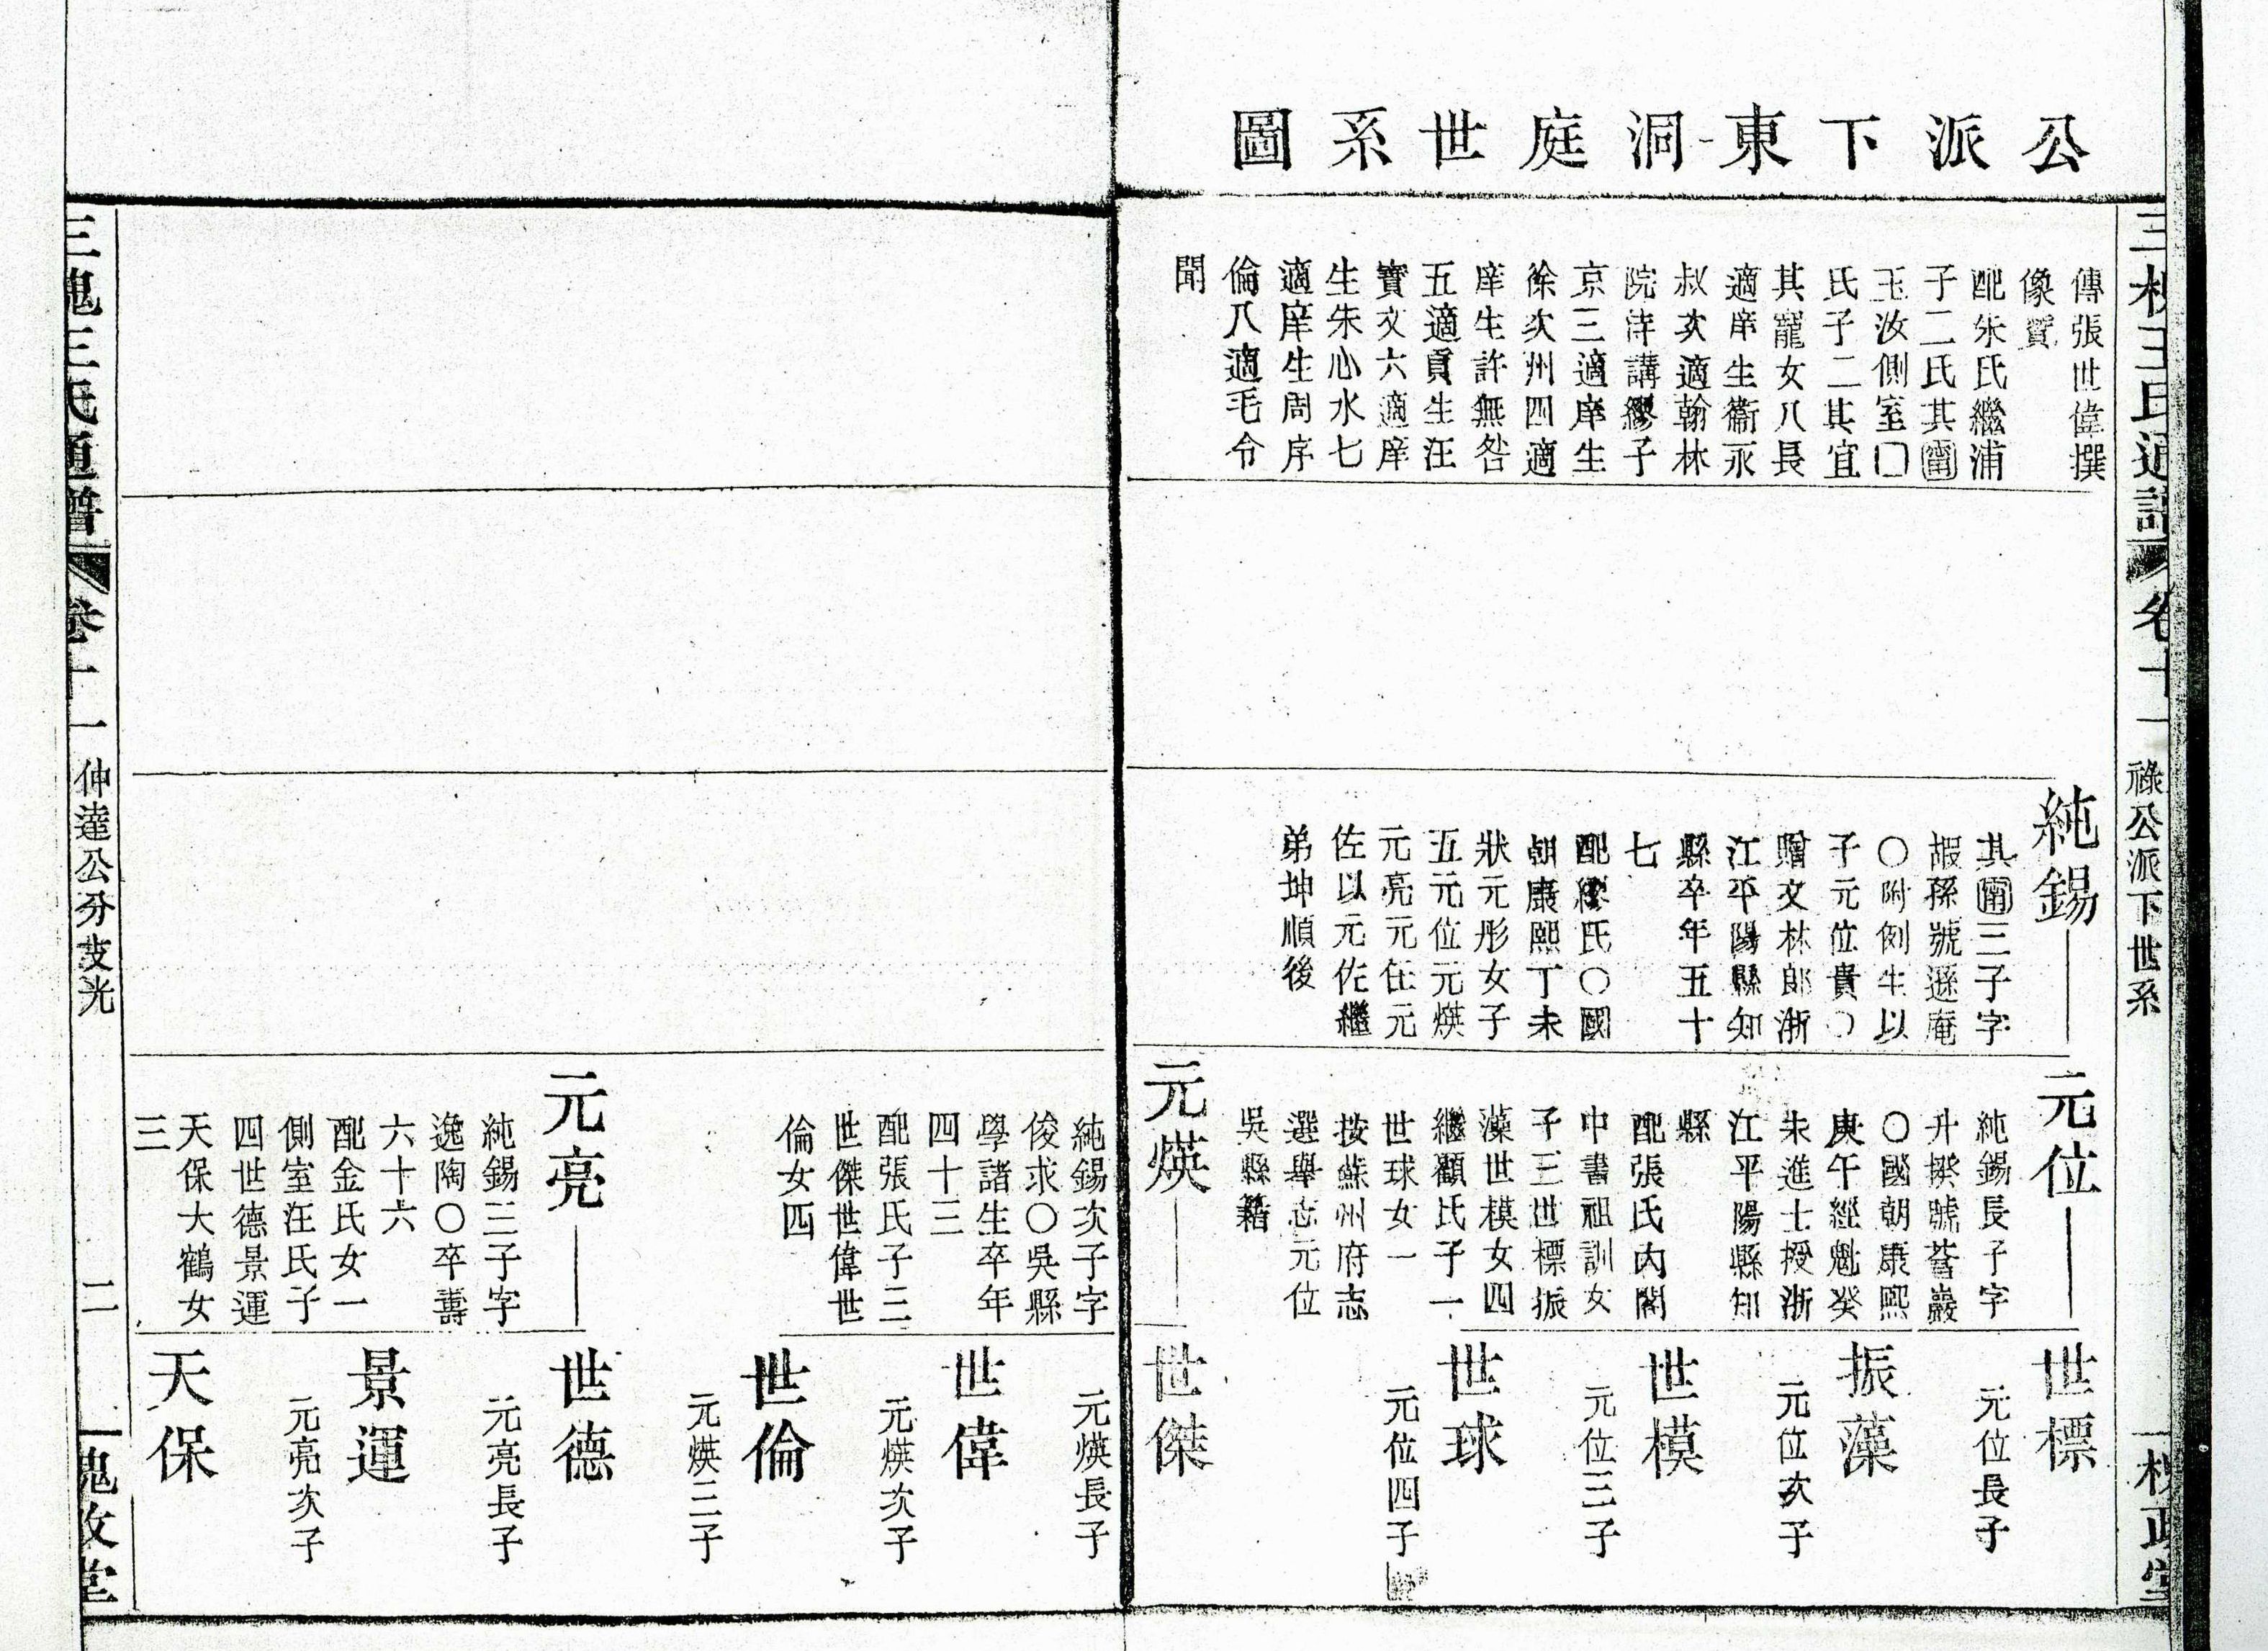 公派下東洞庭世系圖
三槐王氏通譜
卷十一
祿公派下世系
三槐堂
傳張世偉撰
像贊
配朱氏繼浦
子二氏其𡩋
玉汝側室□
氏子二其宜
其寵女八長
適庠生衞永
叔次適翰林
院待講繆子
京三適庠生
徐次州四適
庠生許無咎
五適貢生汪
實文六適庠
生朱心水七
適庠生周序
倫八適毛令
聞
純錫
三子字
嘏孫號遜庵
○附例生以
子元位貴○
贈文林郎浙
江平陽縣知
縣卒年五十
七
配繆氏○國
朝康熙丁未
狀元彤女子
五元位元煐
元亮元任元
佐以元佐繼
弟坤順後
元位
純錫長子字
升揆號菩巖
○國朝康熙
庚午經魁癸
未進士授浙
江平陽縣知
縣
配張氏內閣
中書祖訓女
子三世標振
藻世模女四
繼顧氏子一
世球女一
按蘇州府志
選舉志元位
吳縣籍
元煐
世標
元位長子
振藻
元位次子
世模
元位三子
世球
元位四子
世傑
純錫次子字
俊求○吳縣
學諸生卒年
四十三
配張氏子三
世傑世偉世
倫女四
元亮
純錫三子字
逸陶○卒壽
六十六
配金氏女一
側室汪氏子
四世德景運
天保大鶴女
三
元煐長子
世偉
元煐次子
世倫
元煐三子
世德
元亮長子
景運
元亮次子
天保
三槐王氏通譜
卷十一
仲達公分支光
二